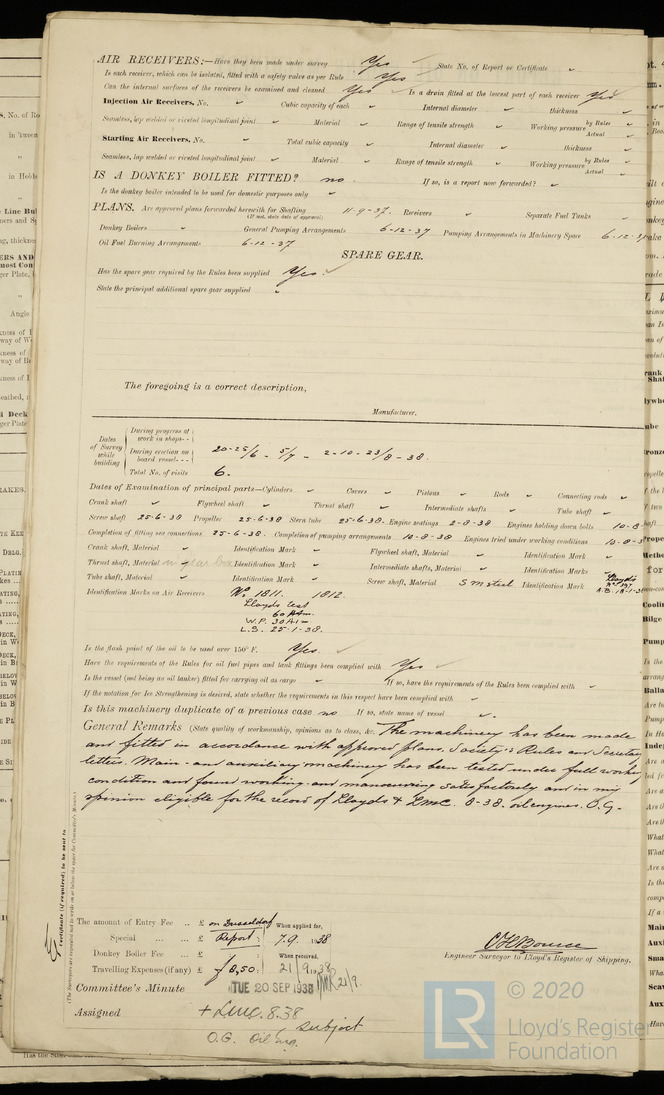 AIR RECEIVERS:—Have they been made under survey Yes State No. of Report or Certificate
Is each receiver, which can be isolated, fitted with a safety valve as per Rule Yes
Can the internal surfaces of the receivers be examined and cleaned Yes Is a drain fitted at the lowest part of each receiver Yes
Injection Air Receivers, No. Cubic capacity of each Internal diameter thickness
Seamless, lap welded or riveted longitudinal joint Material Range of tensile strength Working pressure by Rules Actual
Starting Air Receivers, No. Total cubic capacity Internal diameter thickness
Seamless, lap welded or riveted longitudinal joint Material Range of tensile strength Working pressure by Rules Actual
IS A DONKEY BOILER FITTED? no If so, is a report now forwarded?
Is the donkey boiler intended to be used for domestic purposes only
PLANS. Are approved plans forwarded herewith for Shafting 11-9-37. Receivers Separate Fuel Tanks
(If not, state date of approval)
Donkey Boilers General Pumping Arrangements 6-12-37 Pumping Arrangements in Machinery Space 6-12-37
Oil Fuel Burning Arrangements 6-12-37
SPARE GEAR.
Has the spare gear required by the Rules been supplied Yes.
State the principal additional spare gear supplied
The foregoing is a correct description,
Manufacturer.
Dates of Survey while building
During progress of work in shops--
During erection on board vessel--- 20-25/6 - 5/7 - 2-10-23/8-38.
Total No. of visits 6.
Dates of Examination of principal parts—Cylinders Covers Pistons Rods Connecting rods
Crank shaft Flywheel shaft Thrust shaft Intermediate shafts Tube shaft
Screw shaft 25-6-38 Propeller 25-6-38 Stern tube 25-6-38. Engine seatings 2-8-38 Engines holding down bolts 10-8-
Completion of fitting sea connections 25-6-38. Completion of pumping arrangements 10-8-38 Engines tried under working conditions 10-8-3
Crank shaft, Material Identification Mark Flywheel shaft, Material Identification Mark
Thrust shaft, Material in gear box Identification Mark Intermediate shafts, Material Identification Marks
Tube shaft, Material Identification Mark Screw shaft, Material S m steel Identification Mark Lloyds
Identification Marks on Air Receivers No. 1811. 1812.
Lloyds test
60 Atm.
W.P. 30 At—
L.S. 25-1-38.
Is the flash point of the oil to be used over 150° F. Yes.
Have the requirements of the Rules for oil fuel pipes and tank fittings been complied with Yes
Is the vessel (not being an oil tanker) fitted for carrying oil as cargo If so, have the requirements of the Rules been complied with
If the notation for Ice Strengthening is desired, state whether the requirements in this respect have been complied with
Is this machinery duplicate of a previous case no If so, state name of vessel
General Remarks (State quality of workmanship, opinions as to class, &c. The machinery has been made
and fitted in accordance with approved plans. Society's Rules and Secretary
letters. Main- and auxiliary machinery has been tested under full working
condition and found working and manoeuvring satisfactorily and in my
opinion eligible for the record of Lloyds + LMC. 8-38. oil engines. O.G.
The amount of Entry Fee .. £ on Dusseldorf When applied for,
Special ... ... £ Report : 7.9. 1938
Donkey Boiler Fee ... £ When received,
Travelling Expenses (if any) £ £ 8,50: 21/9 1938
Engineer Surveyor to Lloyd's Register of Shipping.
Committee's Minute TUE 20 SEP 1938
Assigned + LMC. 8.38
subject
O.G. Oil eng.
Certificate (if required) to be sent to
(The Surveyors are requested not to write on or below the space for Committee's Minute.)
LR © 2020
Lloyd's Register
Foundation